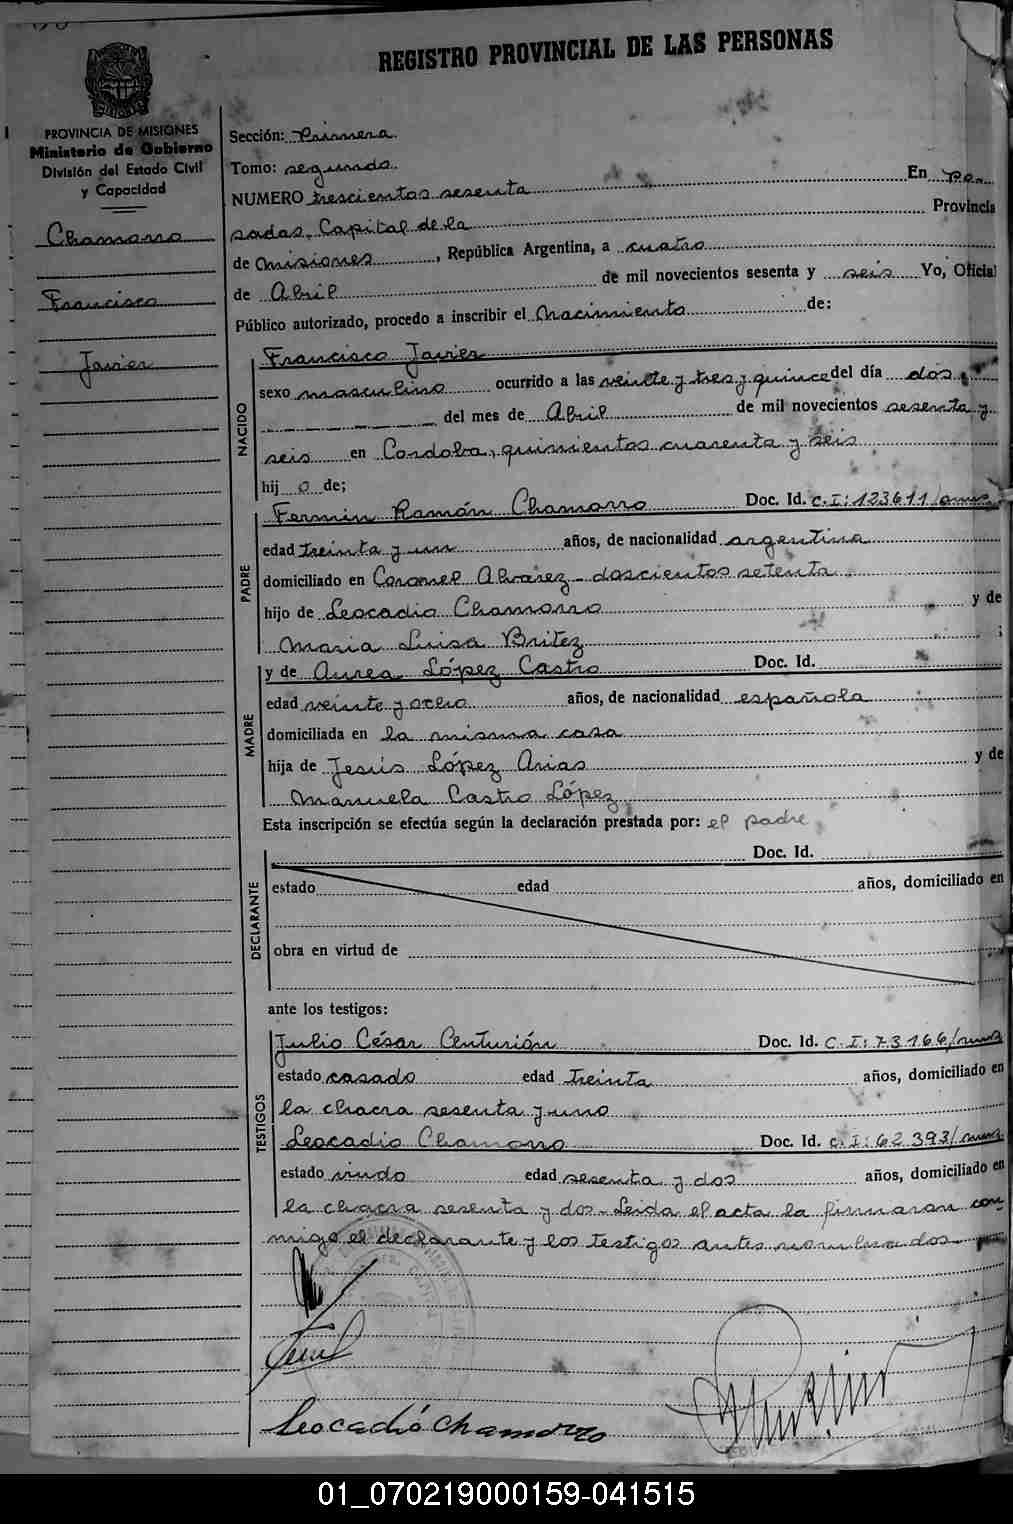 REGISTRO PROVINCIAL DE LAS PERSONAS
PROVINCIA DE MISIONES
Ministerio de Gobierno
División del Estado Civil
y Capacidad
Chamorro
Francisco
Javier
Sección: Primera.
Tomo: segundo.
NUMERO trescientos sesenta En Po-
sadas, Capital de la Provincia
de Misiones, República Argentina, a cuatro
de Abril de mil novecientos sesenta y seis Yo, Oficial
Público autorizado, procedo a inscribir el Nacimiento de:
NACIDO
Francisco Javier
sexo masculino ocurrido a las veinte y tres y quince del día dos
del mes de Abril de mil novecientos sesenta y
seis en Cordoba, quinientos cuarenta y seis
hij o de;
PADRE
Fermin Ramón Chamorro Doc. Id. C.I: 123611/mnes
edad treinta y un años, de nacionalidad argentina
domiciliado en Coronel Alvarez - doscientos setenta
hijo de Leocadio Chamorro y de
Maria Luisa Britez ;
MADRE
y de Aurea López Castro Doc. Id.
edad veinte y ocho años, de nacionalidad española
domiciliada en la misma casa
hija de Jesús López Arias y de
Manuela Castro López
Esta inscripción se efectúa según la declaración prestada por: el padre
DECLARANTE
Doc. Id.
estado edad años, domiciliado en
obra en virtud de
ante los testigos:
TESTIGOS
Julio César Centurión Doc. Id. C.I: 73166/mnes
estado casado edad treinta años, domiciliado en
la chacra sesenta y uno
Leocadio Chamorro Doc. Id. C.I: 62393/mnes
estado viudo edad sesenta y dos años, domiciliado en
la chacra sesenta y dos - Leida el acta la firmaron con-
migo el declarante y los testigos antes nombrados
Leocadio Chamorro
01_070219000159-041515